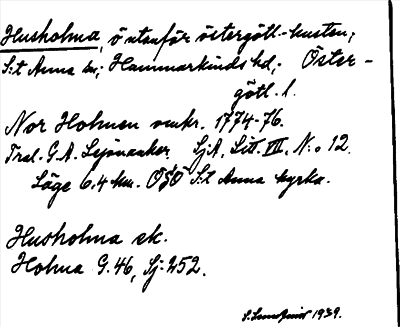 Husholma, ö utanför östergötl-kusten;
S:t Anna sn; Hammarkinds hd; Öster-
götl. l.
Nor Holmen omkr. 1774-76.
Tral. G.A. Lejonanker. SjA, Litt. VII. N:o 12.
Läge 6,4 km. OSO S:t Anna kyrka.
Husholma ek.
Holma G. 46, Sj: 252.
1939.